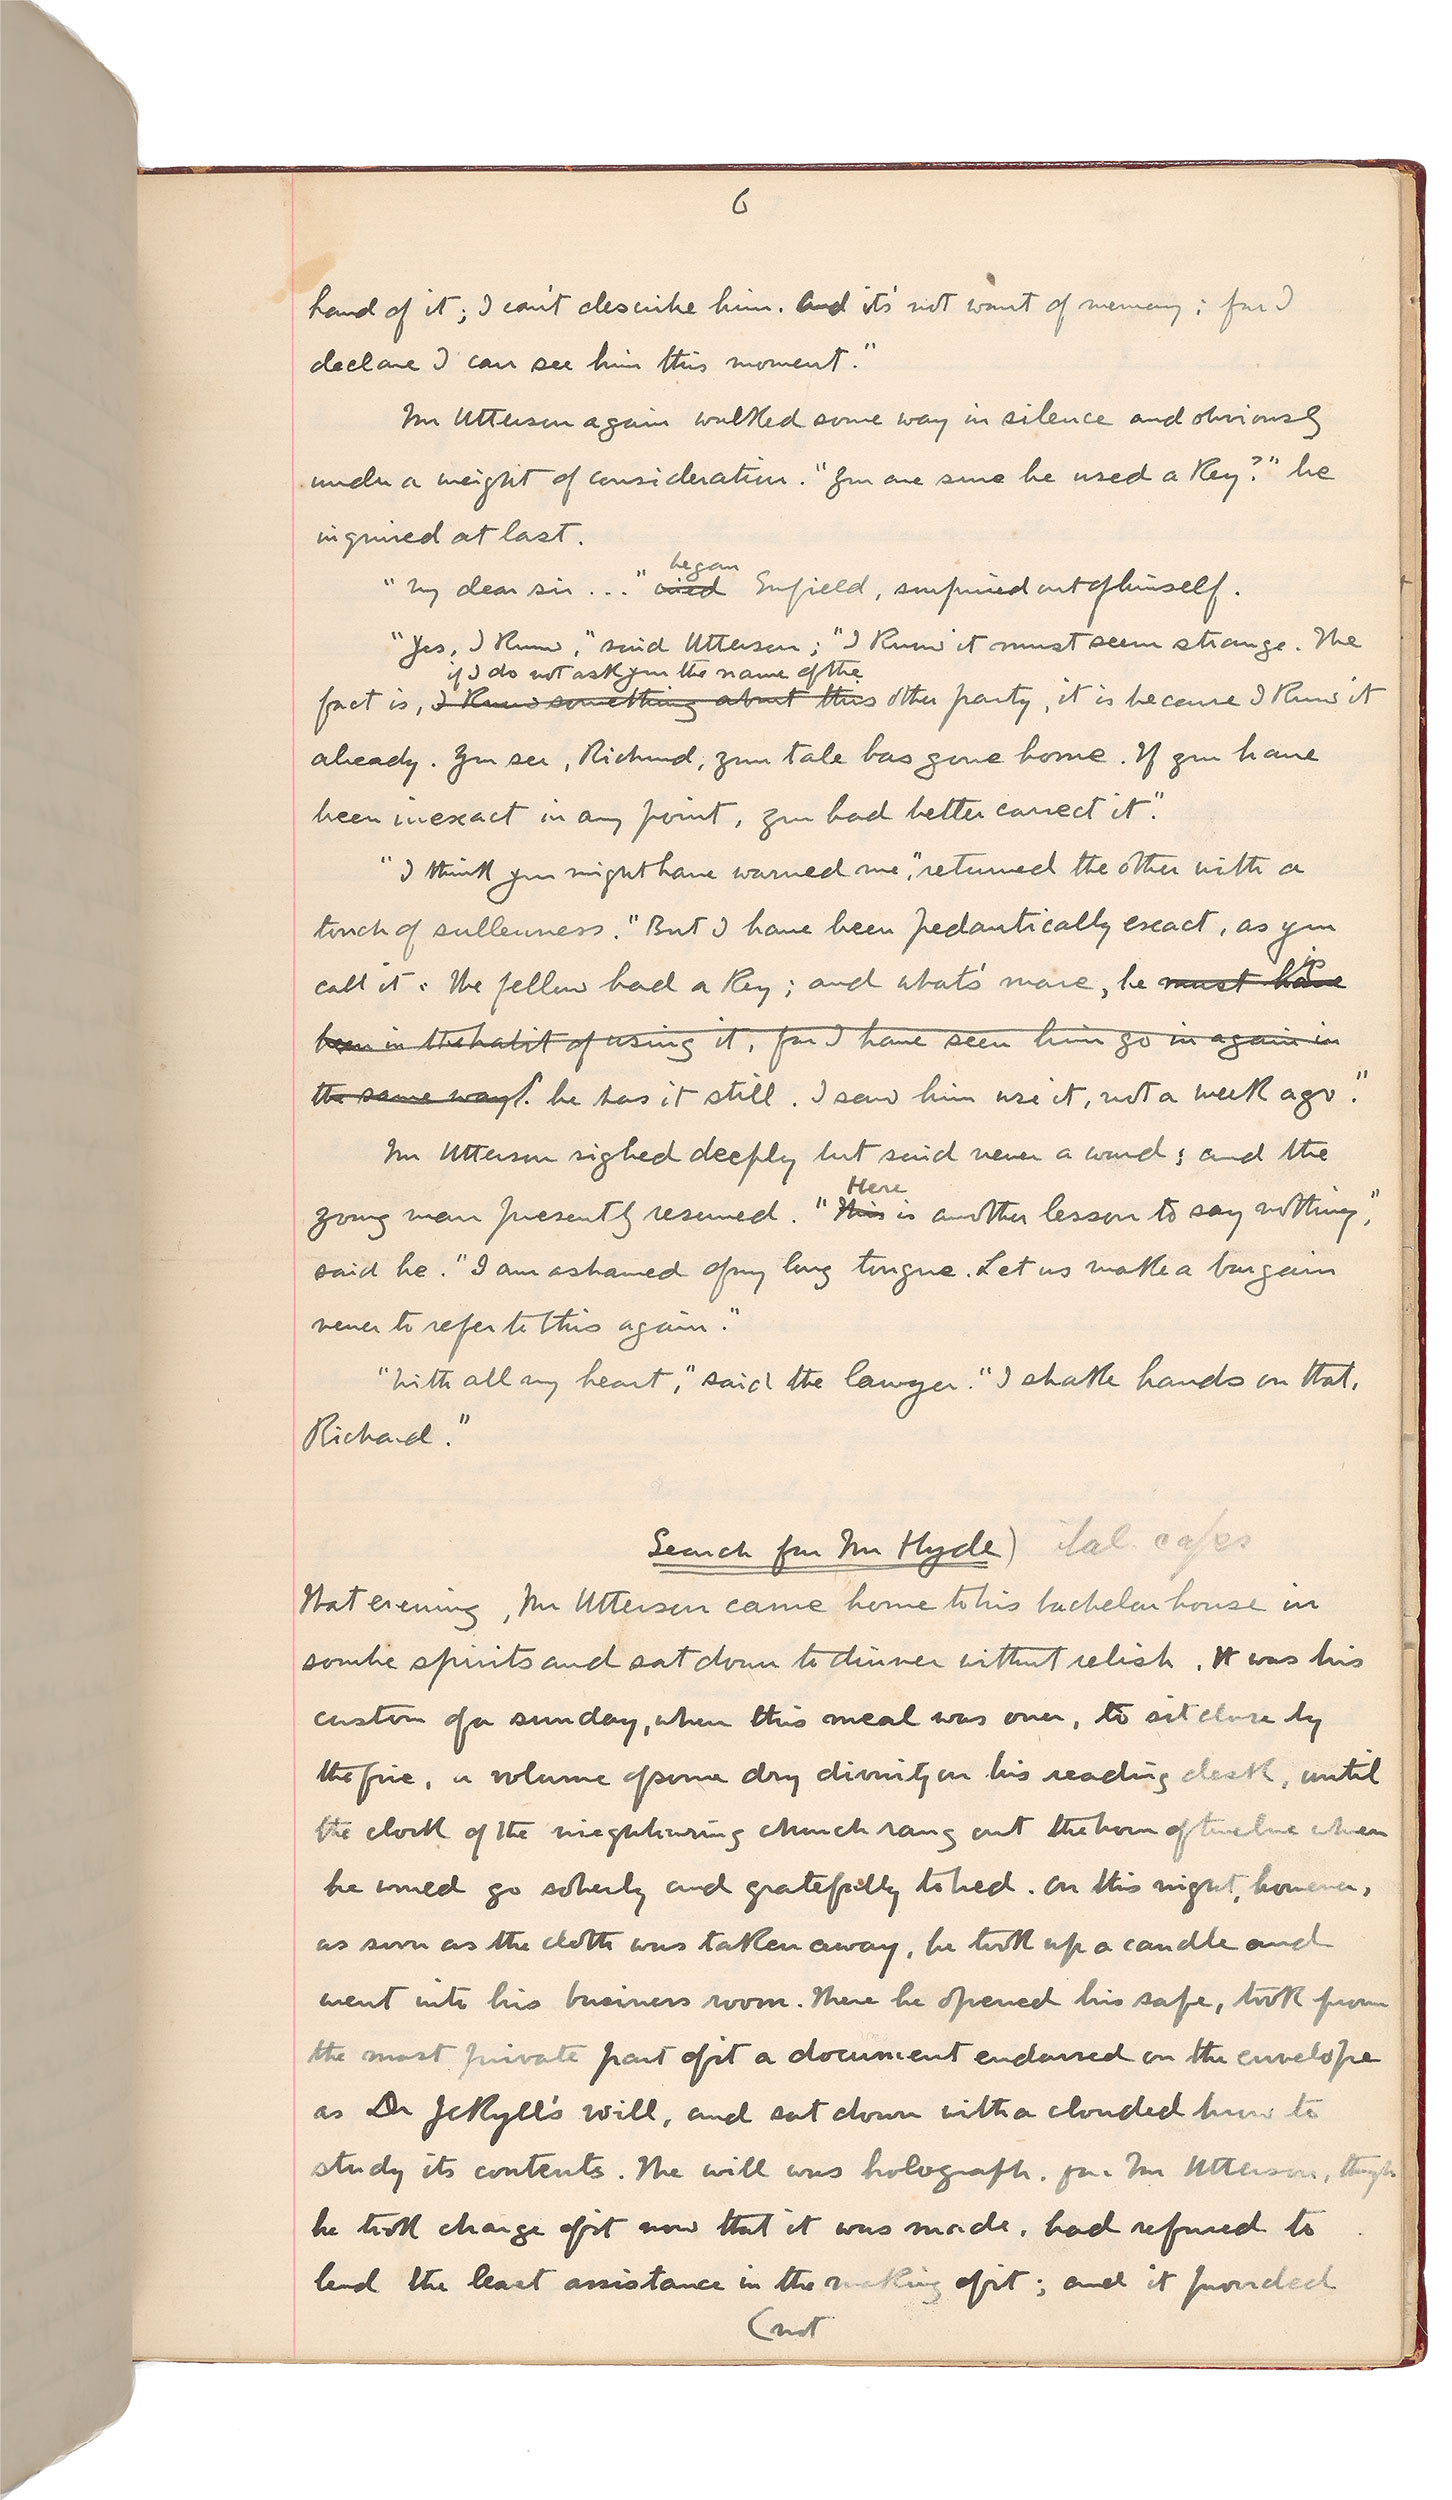 6
hand of it; I can't describe him. And it's not want of memory; for I
declare I can see him this moment."
Mr Utterson again walked some way in silence and obviously
under a weight of consideration. "You are sure he used a key?" he
inquired at last.
began
"My dear sir ..." cried Enfield, surprised out of himself.
"Yes, I know," said Utterson; "I know it must seem strange. The
if I do not ask you the name of the
fact is, I know something about this other party, it is because I know it
already. You see, Richard, your tale has gone home. If you have
been inexact in any point, you had better correct it."
"I think you might have warned me," returned the other with a
touch of sullenness. "But I have been pedantically exact, as you
call it. The fellow had a key; and what's more, he must have
been in the habit of using it, for I have seen him go in again in
the same way. he has it still. I saw him use it, not a week ago."
Mr Utterson sighed deeply but said never a word; and the
Here
young man presently resumed. "This is another lesson to say nothing,"
said he. "I am ashamed of my long tongue. Let us make a bargain
never to refer to this again."
"With all my heart," said the lawyer. "I shake hands on that,
Richard."
Search for Mr Hyde) ital. caps
That evening, Mr Utterson came home to his bachelor house in
sombre spirits and sat down to dinner without relish. It was his
custom of a Sunday, when this meal was over, to sit close by
the fire, a volume of some dry divinity on his reading desk, until
the clock of the nieghbouring church rang out the hour of twelve when
he woued go soberly and gratefully to bed. On this night, however,
as soon as the cloth was taken away, he took up a candle and
went into his business room. There he opened his safe, took from
the most private part of it a document endorsed on the envelope
as Dr Jekyll's will, and sat down with a clouded brow to
study its contents. The will was holograph. for Mr Utterson, though
he took charge of it now that it was made, had refused to
lend the least assistance in the making of it; and it provided
(not